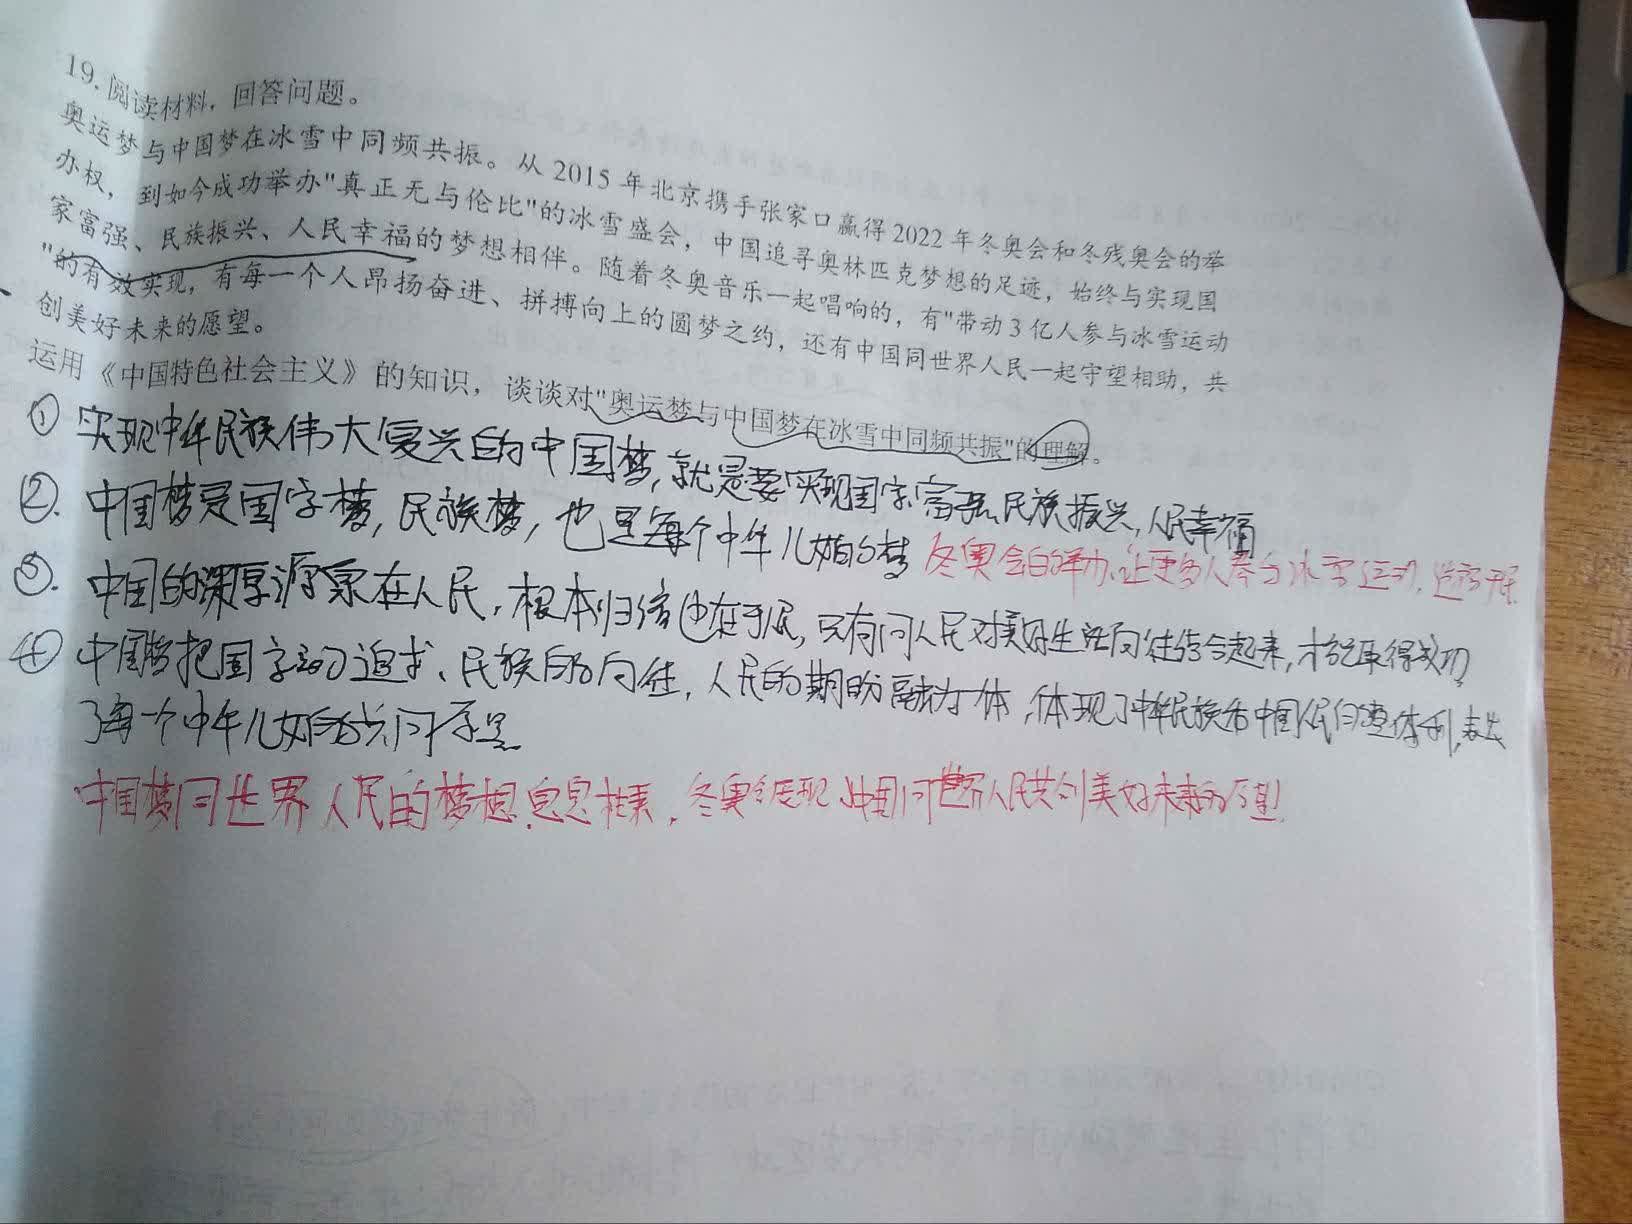 19. 阅读材料，回答问题。
奥运梦与中国梦在冰雪中同频共振。从 2015 年北京携手张家口赢得 2022 年冬奥会和冬残奥会的举
办权，到如今成功举办"真正无与伦比"的冰雪盛会，中国追寻奥林匹克梦想的足迹，始终与实现国
家富强、民族振兴、人民幸福的梦想相伴。随着冬奥音乐一起唱响的，有"带动 3 亿人参与冰雪运动
"的有效实现，有每一个人昂扬奋进、拼搏向上的圆梦之约，还有中国同世界人民一起守望相助，共
创美好未来的愿望。
运用《中国特色社会主义》的知识，谈谈对"奥运梦与中国梦在冰雪中同频共振"的理解。
① 实现中华民族伟大复兴的中国梦，就是要实现国家富强 民族振兴，人民幸福
②. 中国梦是国家梦，民族梦，也是每个中华儿女的梦 冬奥会的举办，让更多人参与冰雪运动，造福于民
③. 中国的深厚源泉在人民，根本归宿也在于民，只有同人民对美好生活向往结合起来，才能取得成功
④ 中国梦把国家的追求、民族的向往，人民的期盼融为一体，体现了中华民族和中国人民的整体利，表达
了每一个中华儿女的共同愿景
中国梦同世界人民的梦想息息相关，冬奥会展现 中国同世界人民共创美好未来的愿望.